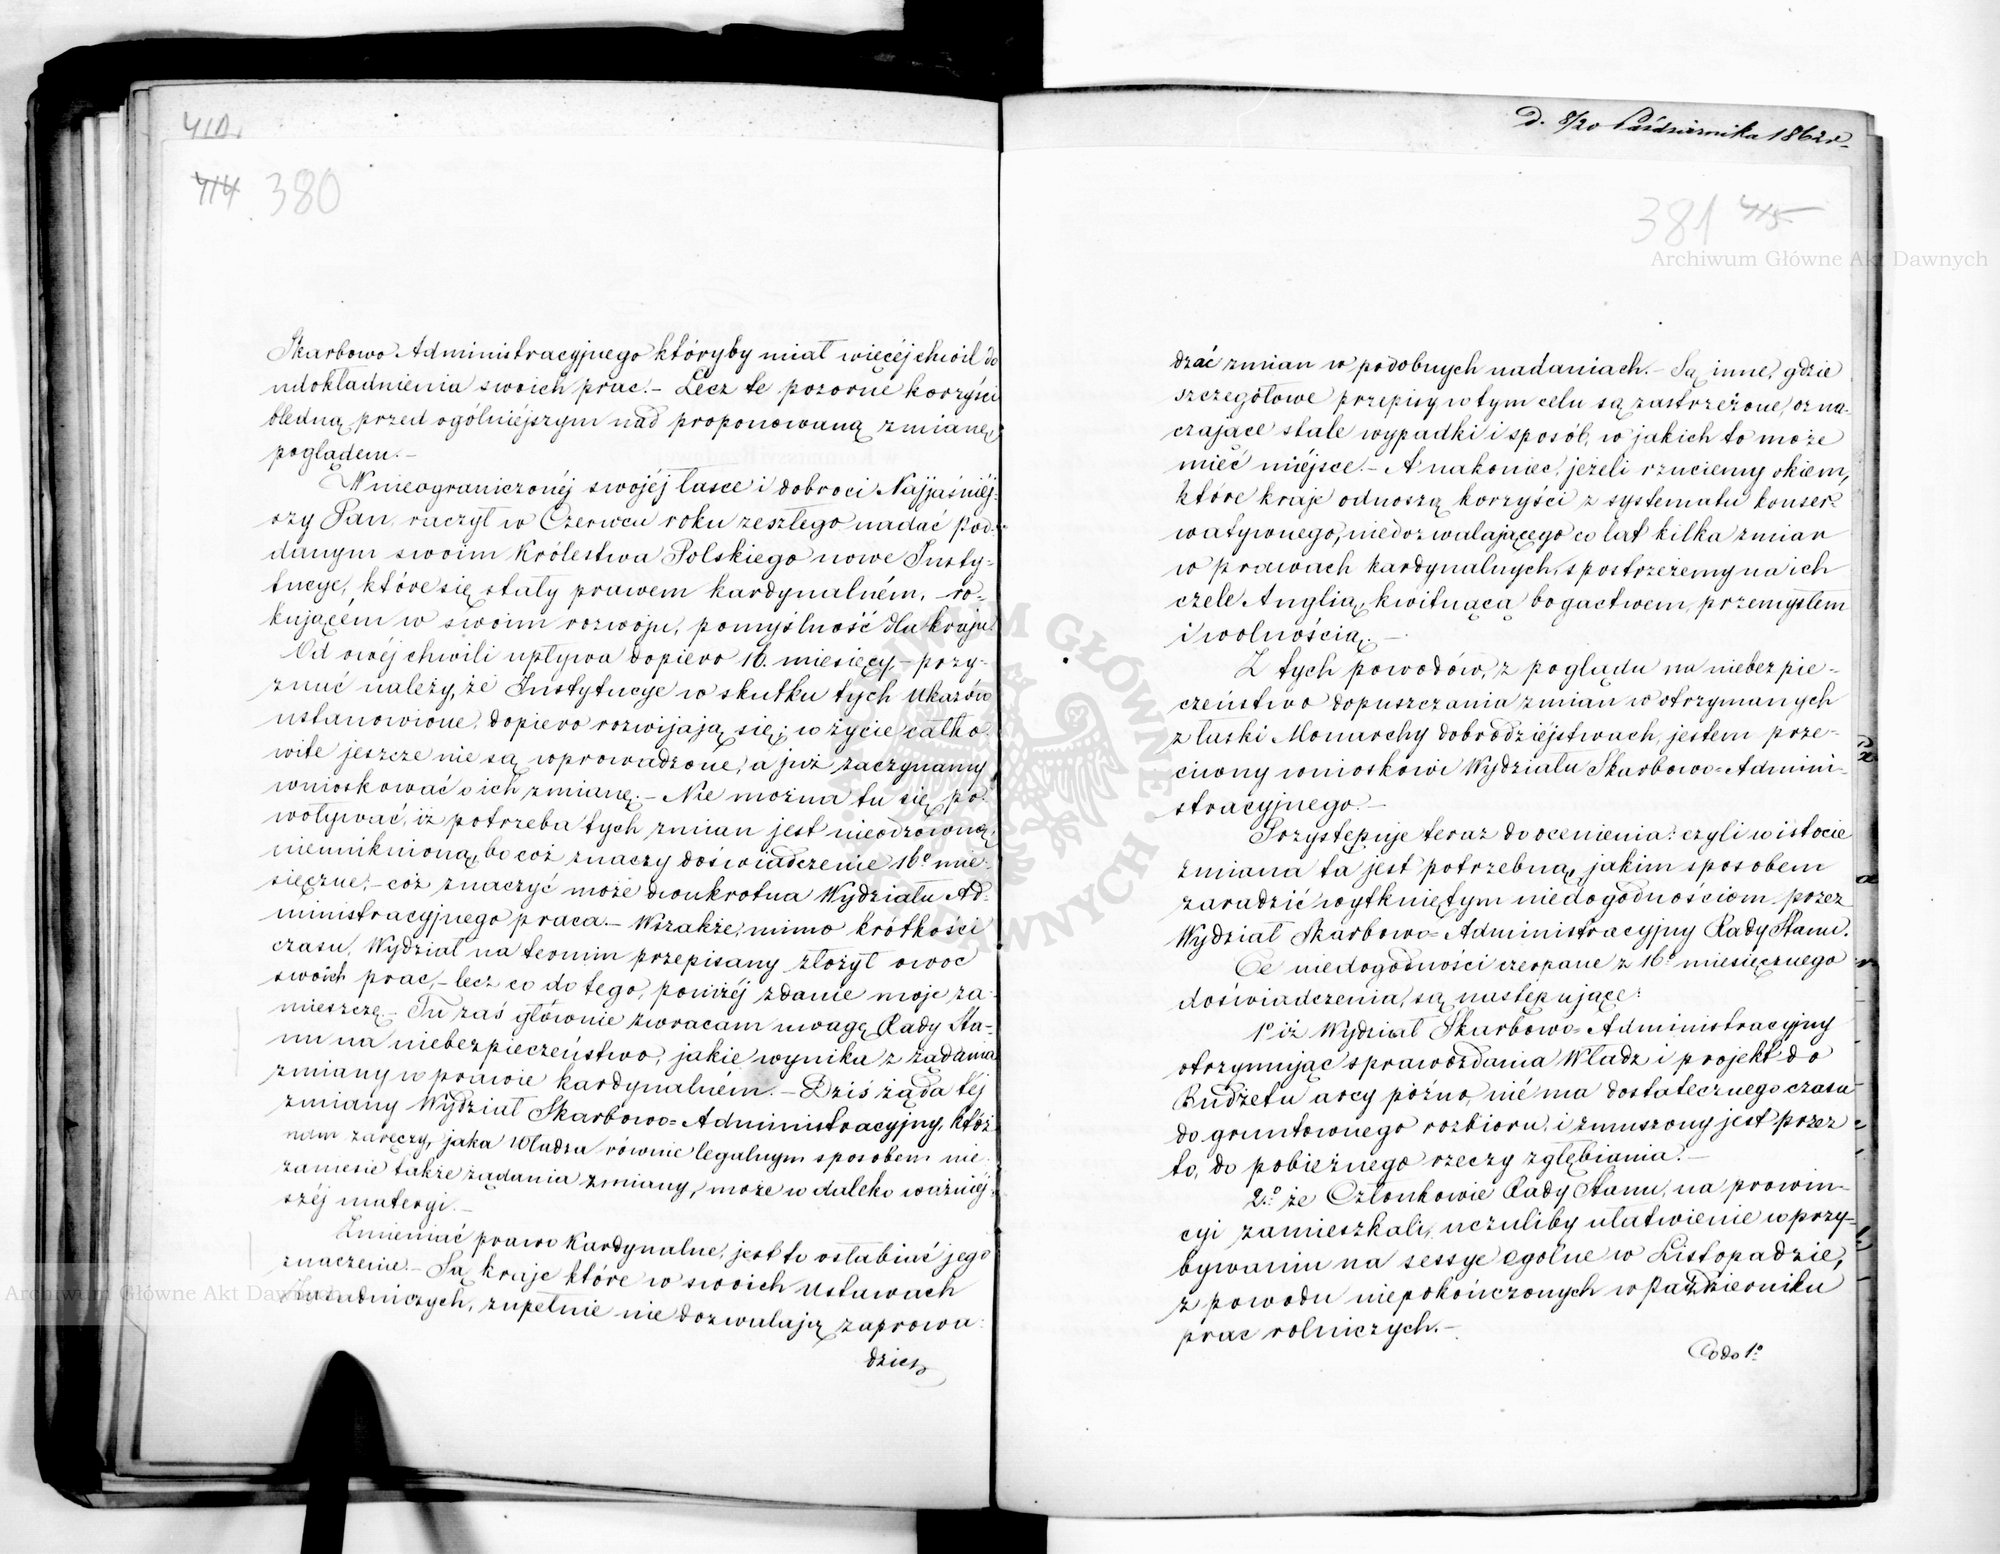 410.
414. 380
Skarbowo Administracyjnego któryby miał więcéj chwil do
udokładnienia swoich prac.– Lecz te pozorne korzyści
bledną przed ogólniéjszym nad proponowaną zmianę,
poglądem.–
W nieograniczonéj swojéj łasce i dobroci Najjaśniéj-
szy Pan raczył w Czerwcu roku zeszłego nadać pod-
danym swoim Królestwa Polskiego nowe Insty-
tucye, które się stały prawem kardynalném, – ro-
kującém w swoim rozwoju, pomyślność dla kraju.
Od owéj chwili upływa dopiero 16. miesięcy,– przy-
znać należy, że Instytucye w skutku tych Ukazów
ustanowione, dopiero rozwijają się; w życie całko-
wite jeszcze nie są wprowadzone, a już zaczynamy
wnioskować o ich zmianę.– Nie można tu się po-
woływać, iż potrzeba tych zmian jest nieodzowną,
nieuniknioną, bo coż znaczy doświadczenie 16o mie-
sięczne,– coż znaczyć może dwukrotna Wydziału Ad-
ministracyjnego praca.– Wszakże, mimo krótkości
czasu, Wydział na termin przepisany złożył owoc
swoich prac,– lecz co do tego, poniżéj zdanie moje za-
mieszczę.– Tu zaś głównie zwracam uwagę Rady Sta-
nu na niebezpieczeństwo, jakie wynika z żądania
zmiany w prawie kardynalném.– Dziś żąda téj
zmiany Wydział Skarbowo=Administracyjny, któż
nam zaręczy, jaka Władza równie legalnym sposobem nie
zaniesie także żądania zmiany, może w daleko ważniéj-
széj materyi.–
Zmieniać prawo Kardynalne, jest to osłabiać jego
znaczenie.– Są kraje które w swoich ustawach
Zasadniczych, zupełnie nie dozwalają zaprowa-
dzać
D. 8/20 Października 1862 r.
381 415
Archiwum Główne Akt Dawnych
dzać zmian w podobnych nadaniach.– Są inne, gdzie
szczegółowe przepisy w tym celu są zastrzeżone, ozna-
czające stałe wypadki i sposób, w jakich to może
mieć miéjsce.– A nakoniec, jeżeli rzuciemy okiem,
które kraje odnoszą korzyści z systematu konser-
watywnego, niedozwalającego co lat kilka zmian
w prawach kardynalnych, spostrzeżemy na ich
czele Anglią, kwitnącą bogactwem, przemysłem
i wolnością.–
Z tych powodów, z poglądu na niebezpie-
czeństwo dopuszczania zmian w otrzymanych
z łaski Monarchy dobrodziéjstwach, jestem prze-
ciwny wnioskowi Wydziału Skarbowo=Admini-
stracyjnego.–
Przystępuje teraz do ocenienia: czyli w istocie
zmiana ta jest potrzebną, jakim sposobem
zaradzić wytkniętym niedogodnościom przez
Wydział Skarbowo=Administracyjny Rady Stanu.
Te niedogodności czerpane z 16o miesięcznego
doświadczenia, są następujące:
1o iż Wydział Skarbowo=Administracyjny
otrzymując sprawozdania Władz i projekt do
Budżetu arcy późno, nié ma dostatecznego czasu
do gruntownego rozbioru, i zmuszony jest przez
to, do pobieżnego rzeczy zgłębiania.–
2o że Członkowie Rady Stanu, na prowin-
cyi zamieszkali, uczuliby ułatwienie w przy-
bywaniu na sessye ogólne w Listopadzie,
z powodu niepokończonych w Październiku
prac rolniczych.–
Co do 1o
ARCHIWUM GŁÓWNE AKT DAWNYCH
Archiwum Główne Akt Dawnych